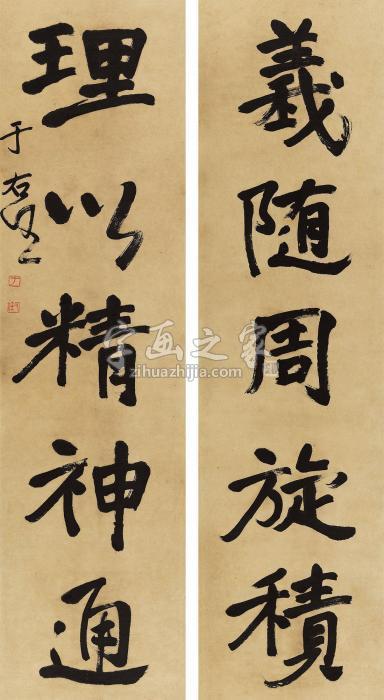 義随周旋積
理以精神通
于右任
字画之家
zihuazhijia.com